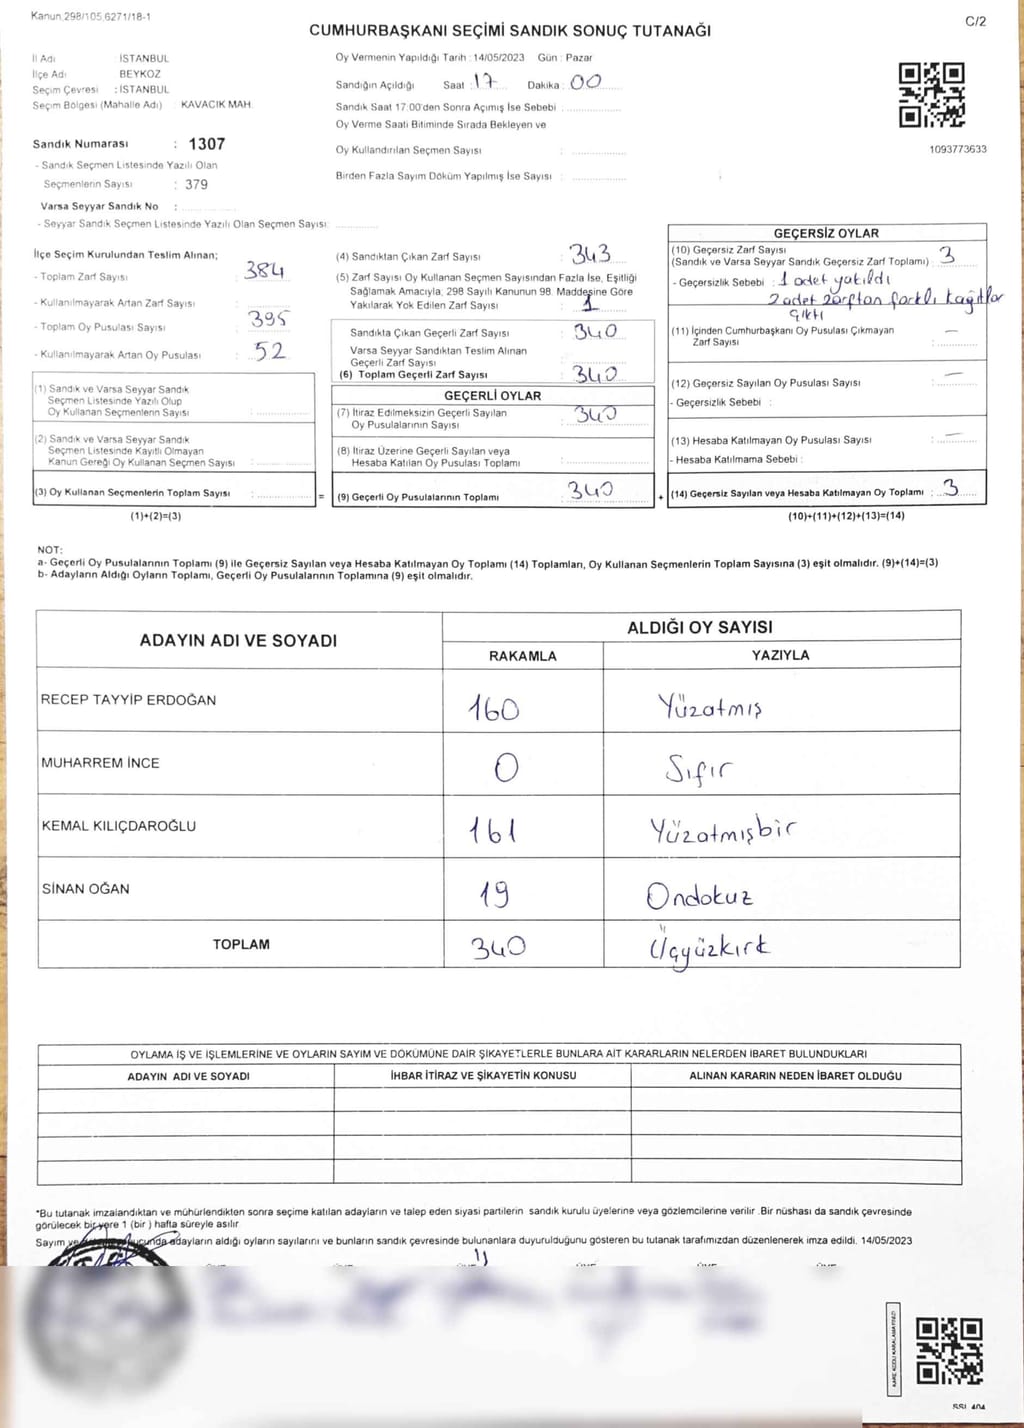 Kanun,298/105,6271/18-1
C/2
CUMHURBAŞKANI SEÇİMİ SANDIK SONUÇ TUTANAĞI
İl Adı : İSTANBUL
İlçe Adı : BEYKOZ
Seçim Çevresi : İSTANBUL
Seçim Bölgesi (Mahalle Adı) : KAVACIK MAH.
Sandık Numarası : 1307
- Sandık Seçmen Listesinde Yazılı Olan
Seçmenlerin Sayısı : 379
Varsa Seyyar Sandık No :
- Seyyar Sandık Seçmen Listesinde Yazılı Olan Seçmen Sayısı:
Oy Vermenin Yapıldığı Tarih : 14/05/2023 Gün : Pazar
Sandığın Açıldığı Saat : 17 Dakika : 00
Sandık Saat 17:00'den Sonra Açımış İse Sebebi :
Oy Verme Saati Bitiminde Sırada Bekleyen ve
Oy Kullandırılan Seçmen Sayısı :
Birden Fazla Sayım Döküm Yapılmış İse Sayısı :
1093773633
İlçe Seçim Kurulundan Teslim Alınan;
- Toplam Zarf Sayısı : 384
- Kullanılmayarak Artan Zarf Sayısı :
- Toplam Oy Pusulası Sayısı : 395
- Kullanılmayarak Artan Oy Pusulası : 52
(1) Sandık ve Varsa Seyyar Sandık
Seçmen Listesinde Yazılı Olup
Oy Kullanan Seçmenlerin Sayısı :
(2) Sandık ve Varsa Seyyar Sandık
Seçmen Listesinde Kayıtlı Olmayan
Kanun Gereği Oy Kullanan Seçmen Sayısı :
(3) Oy Kullanan Seçmenlerin Toplam Sayısı :
(1)+(2)=(3)
(4) Sandıktan Çıkan Zarf Sayısı : 343
(5) Zarf Sayısı Oy Kullanan Seçmen Sayısından Fazla İse, Eşitliği
Sağlamak Amacıyla; 298 Sayılı Kanunun 98. Maddesine Göre
Yakılarak Yok Edilen Zarf Sayısı : 1
Sandıkta Çıkan Geçerli Zarf Sayısı : 340
Varsa Seyyar Sandıktan Teslim Alınan
Geçerli Zarf Sayısı :
(6) Toplam Geçerli Zarf Sayısı : 340
GEÇERLİ OYLAR
(7) İtiraz Edilmeksizin Geçerli Sayılan : 340
Oy Pusulalarının Sayısı
(8) İtiraz Üzerine Geçerli Sayılan veya
Hesaba Katılan Oy Pusulası Toplamı :
= (9) Geçerli Oy Pusulalarının Toplamı : 340
GEÇERSİZ OYLAR
(10) Geçersiz Zarf Sayısı
(Sandık ve Varsa Seyyar Sandık Geçersiz Zarf Toplamı) : 3
- Geçersizlik Sebebi : 1 adet yakıldı
2 adet zarftan farklı kağıtlar
çıktı
(11) İçinden Cumhurbaşkanı Oy Pusulası Çıkmayan
Zarf Sayısı : —
(12) Geçersiz Sayılan Oy Pusulası Sayısı : —
- Geçersizlik Sebebi :
(13) Hesaba Katılmayan Oy Pusulası Sayısı : —
- Hesaba Katılmama Sebebi :
+ (14) Geçersiz Sayılan veya Hesaba Katılmayan Oy Toplamı : 3
(10)+(11)+(12)+(13)=(14)
NOT:
a- Geçerli Oy Pusulalarının Toplamı (9) ile Geçersiz Sayılan veya Hesaba Katılmayan Oy Toplamı (14) Toplamları, Oy Kullanan Seçmenlerin Toplam Sayısına (3) eşit olmalıdır. (9)+(14)=(3)
b- Adayların Aldığı Oyların Toplamı, Geçerli Oy Pusulalarının Toplamına (9) eşit olmalıdır.
ADAYIN ADI VE SOYADI
ALDIĞI OY SAYISI
RAKAMLA YAZIYLA
RECEP TAYYİP ERDOĞAN 160 Yüzatmış
MUHARREM İNCE 0 Sıfır
KEMAL KILIÇDAROĞLU 161 Yüzatmışbir
SİNAN OĞAN 19 Ondokuz
TOPLAM 340 Üçyüzkırk
OYLAMA İŞ VE İŞLEMLERİNE VE OYLARIN SAYIM VE DÖKÜMÜNE DAİR ŞİKAYETLERLE BUNLARA AİT KARARLARIN NELERDEN İBARET BULUNDUKLARI
ADAYIN ADI VE SOYADI İHBAR İTİRAZ VE ŞİKAYETİN KONUSU ALINAN KARARIN NEDEN İBARET OLDUĞU
*Bu tutanak imzalandıktan ve mühürlendikten sonra seçime katılan adayların ve talep eden siyasi partilerin sandık kurulu üyelerine veya gözlemcilerine verilir .Bir nüshası da sandık çevresinde
görülecek bir yere 1 (bir ) hafta süreyle asılır
Sayım ve adayların aldığı oyların sayılarını ve bunların sandık çevresinde bulunanlara duyurulduğunu gösteren bu tutanak tarafımızdan düzenlenerek imza edildi. 14/05/2023
SSI 404